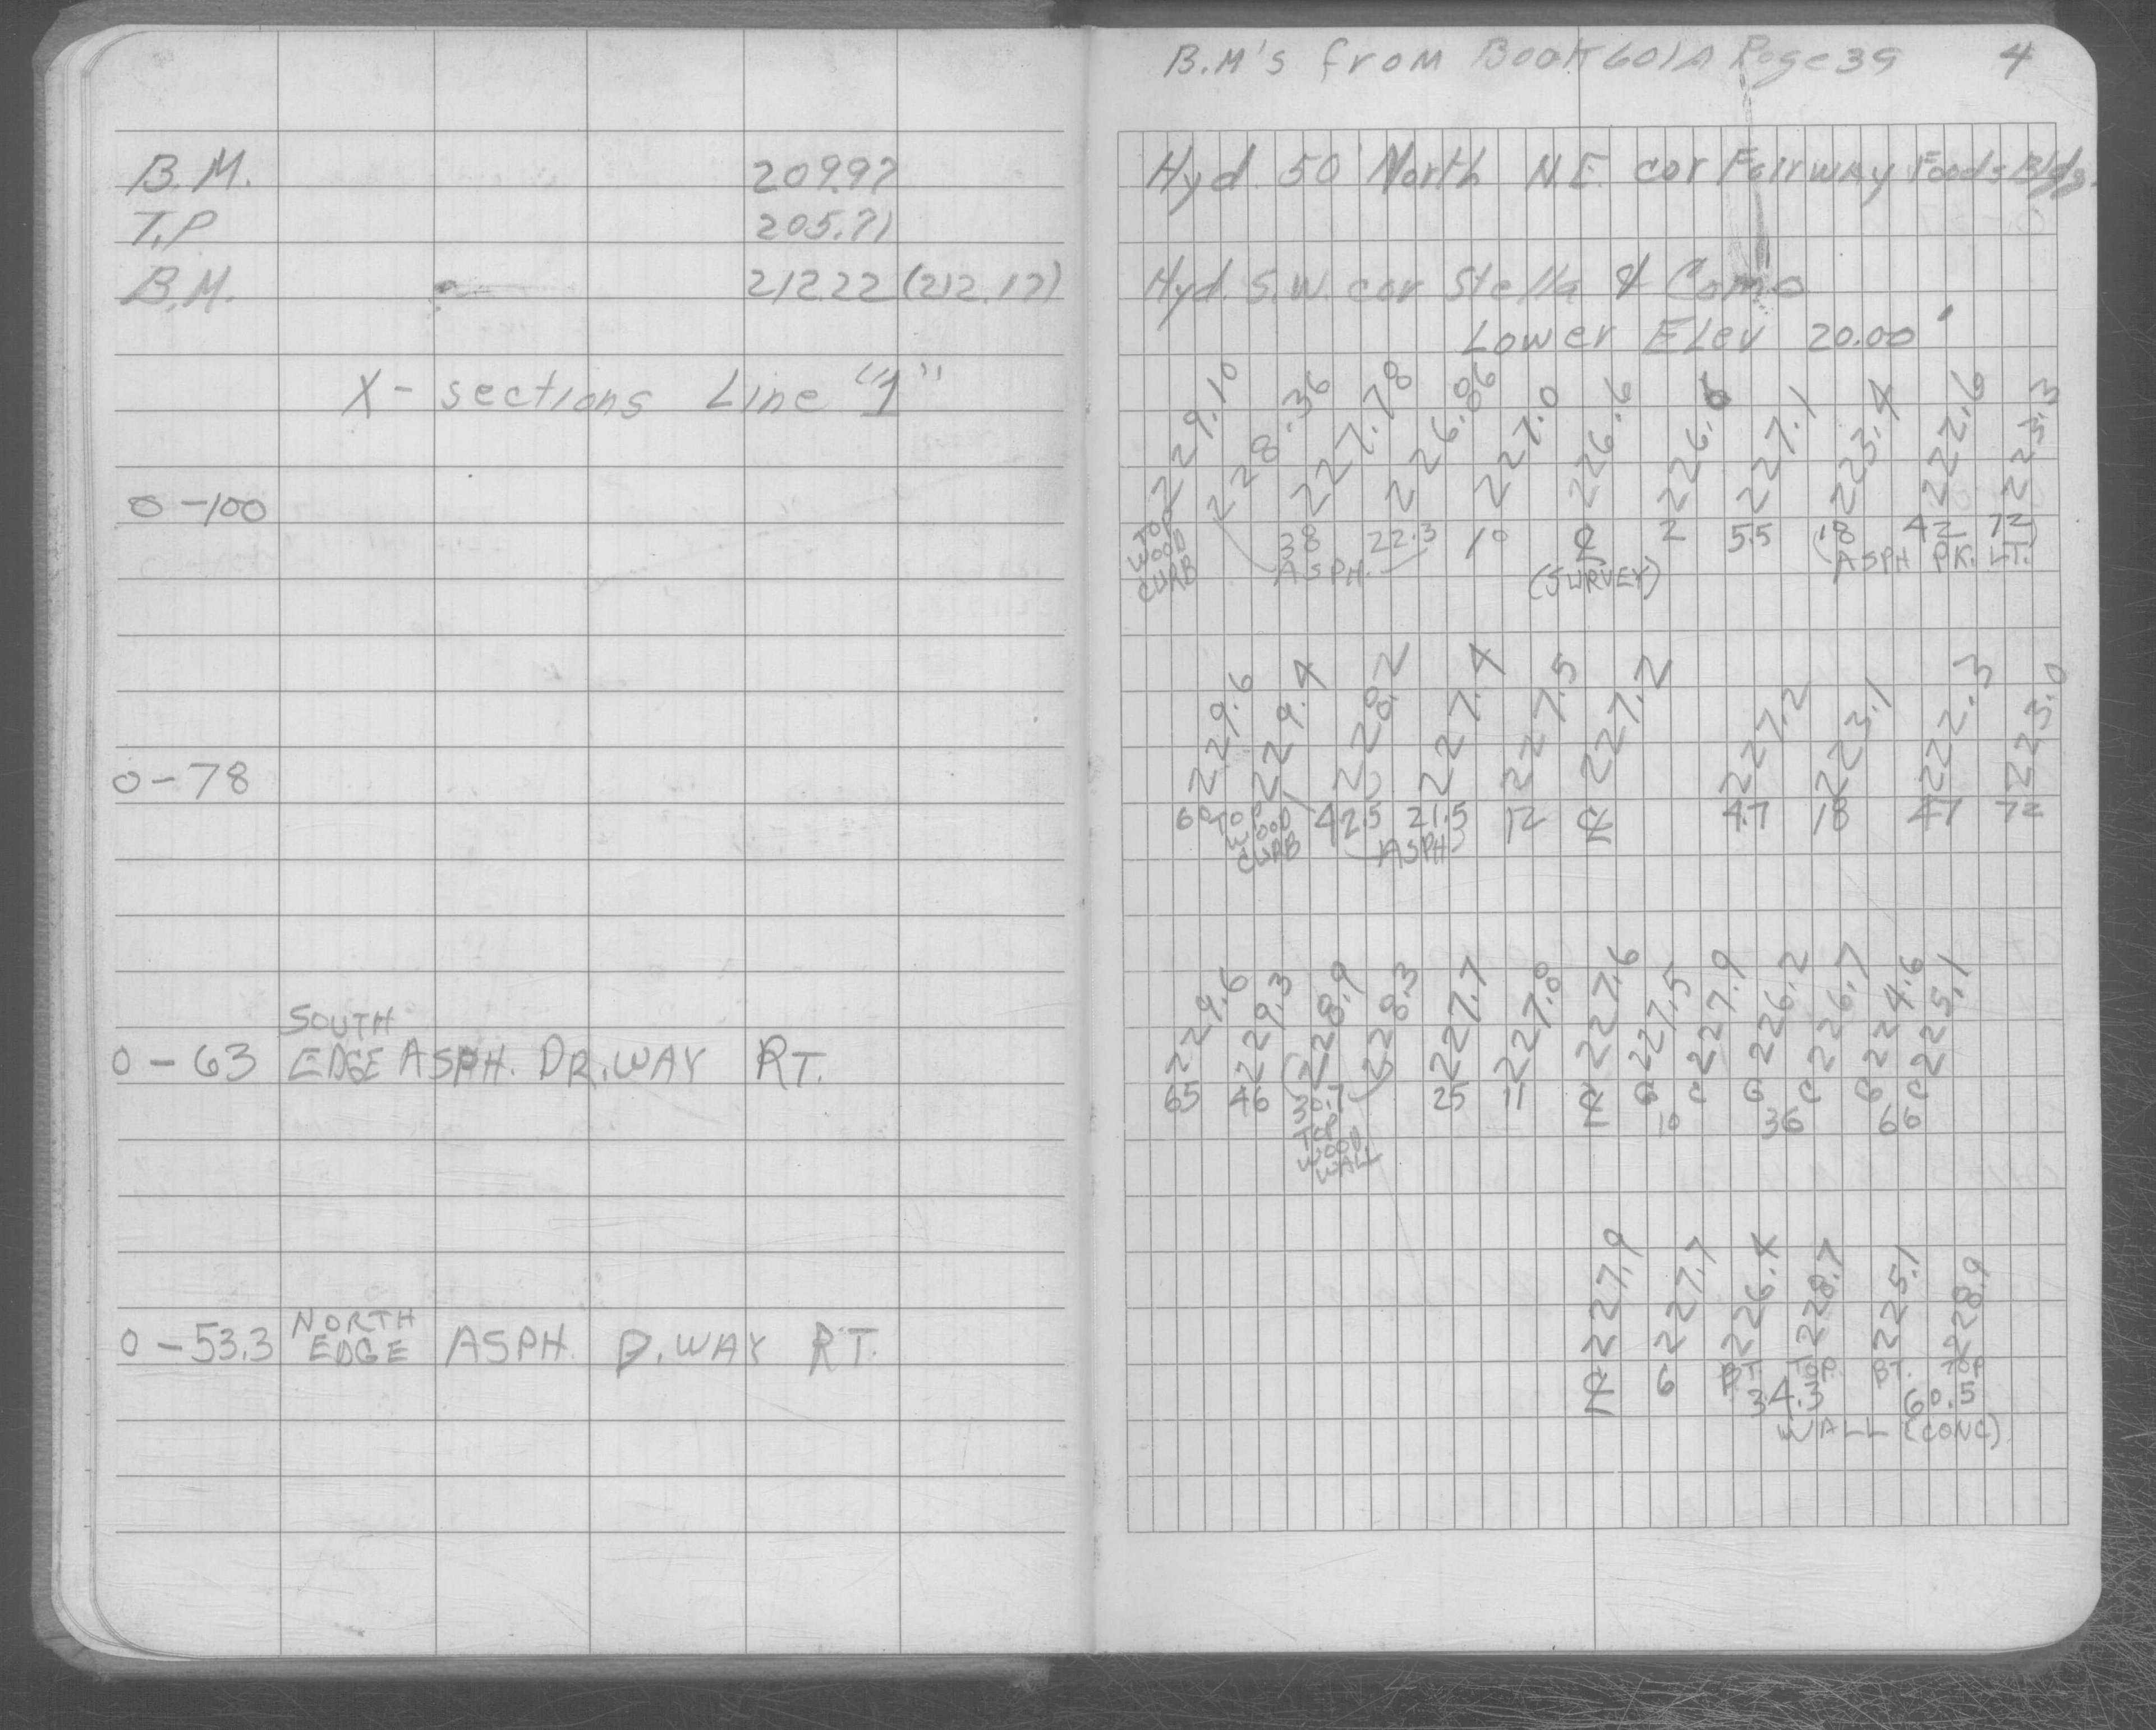 B.M's from Book 601A Page 39 4
B.M. 209.97 Hyd. 50' North N.E. cor Fairway Foods Bldg.
T.P 205.71
B.M. 212.22 (212.17) Hyd. S.W. cor Stella & Como
Lower Elev 20.00'
X-sections Line "1"
229.10 228.36 227.78 226.86 227.0 226.6 226.6 227.1 223.4 222.6 223.3
0-100 TOP WOOD CURB 38 22.3 10 ℄ 2 5.5 18 42 72
ASPH. (SURVEY) (ASPH PK. LT.)
229.6 229.4 228.2 227.4 227.5 227.2 227.2 223.1 222.3 223.0
0-78 60 TOP WOOD CURB 42.5 21.5 12 ℄ 4.7 18 47 72
ASPH
229.6 229.3 228.9 228.3 227.7 227.8 227.6 227.5 227.9 226.2 226.7 224.6 225.1
0-63 SOUTH EDGE ASPH. DR.WAY RT. 65 46 30.7 25 11 ℄ G C G C G C
TOP WOOD WALL 10 36 66
227.9 227.7 226.4 228.7 225.1 228.9
0-53.3 NORTH EDGE ASPH. D.WAY RT. ℄ 6 BT. TOP BT. TOP
34.3 60.5
WALL (CONC)